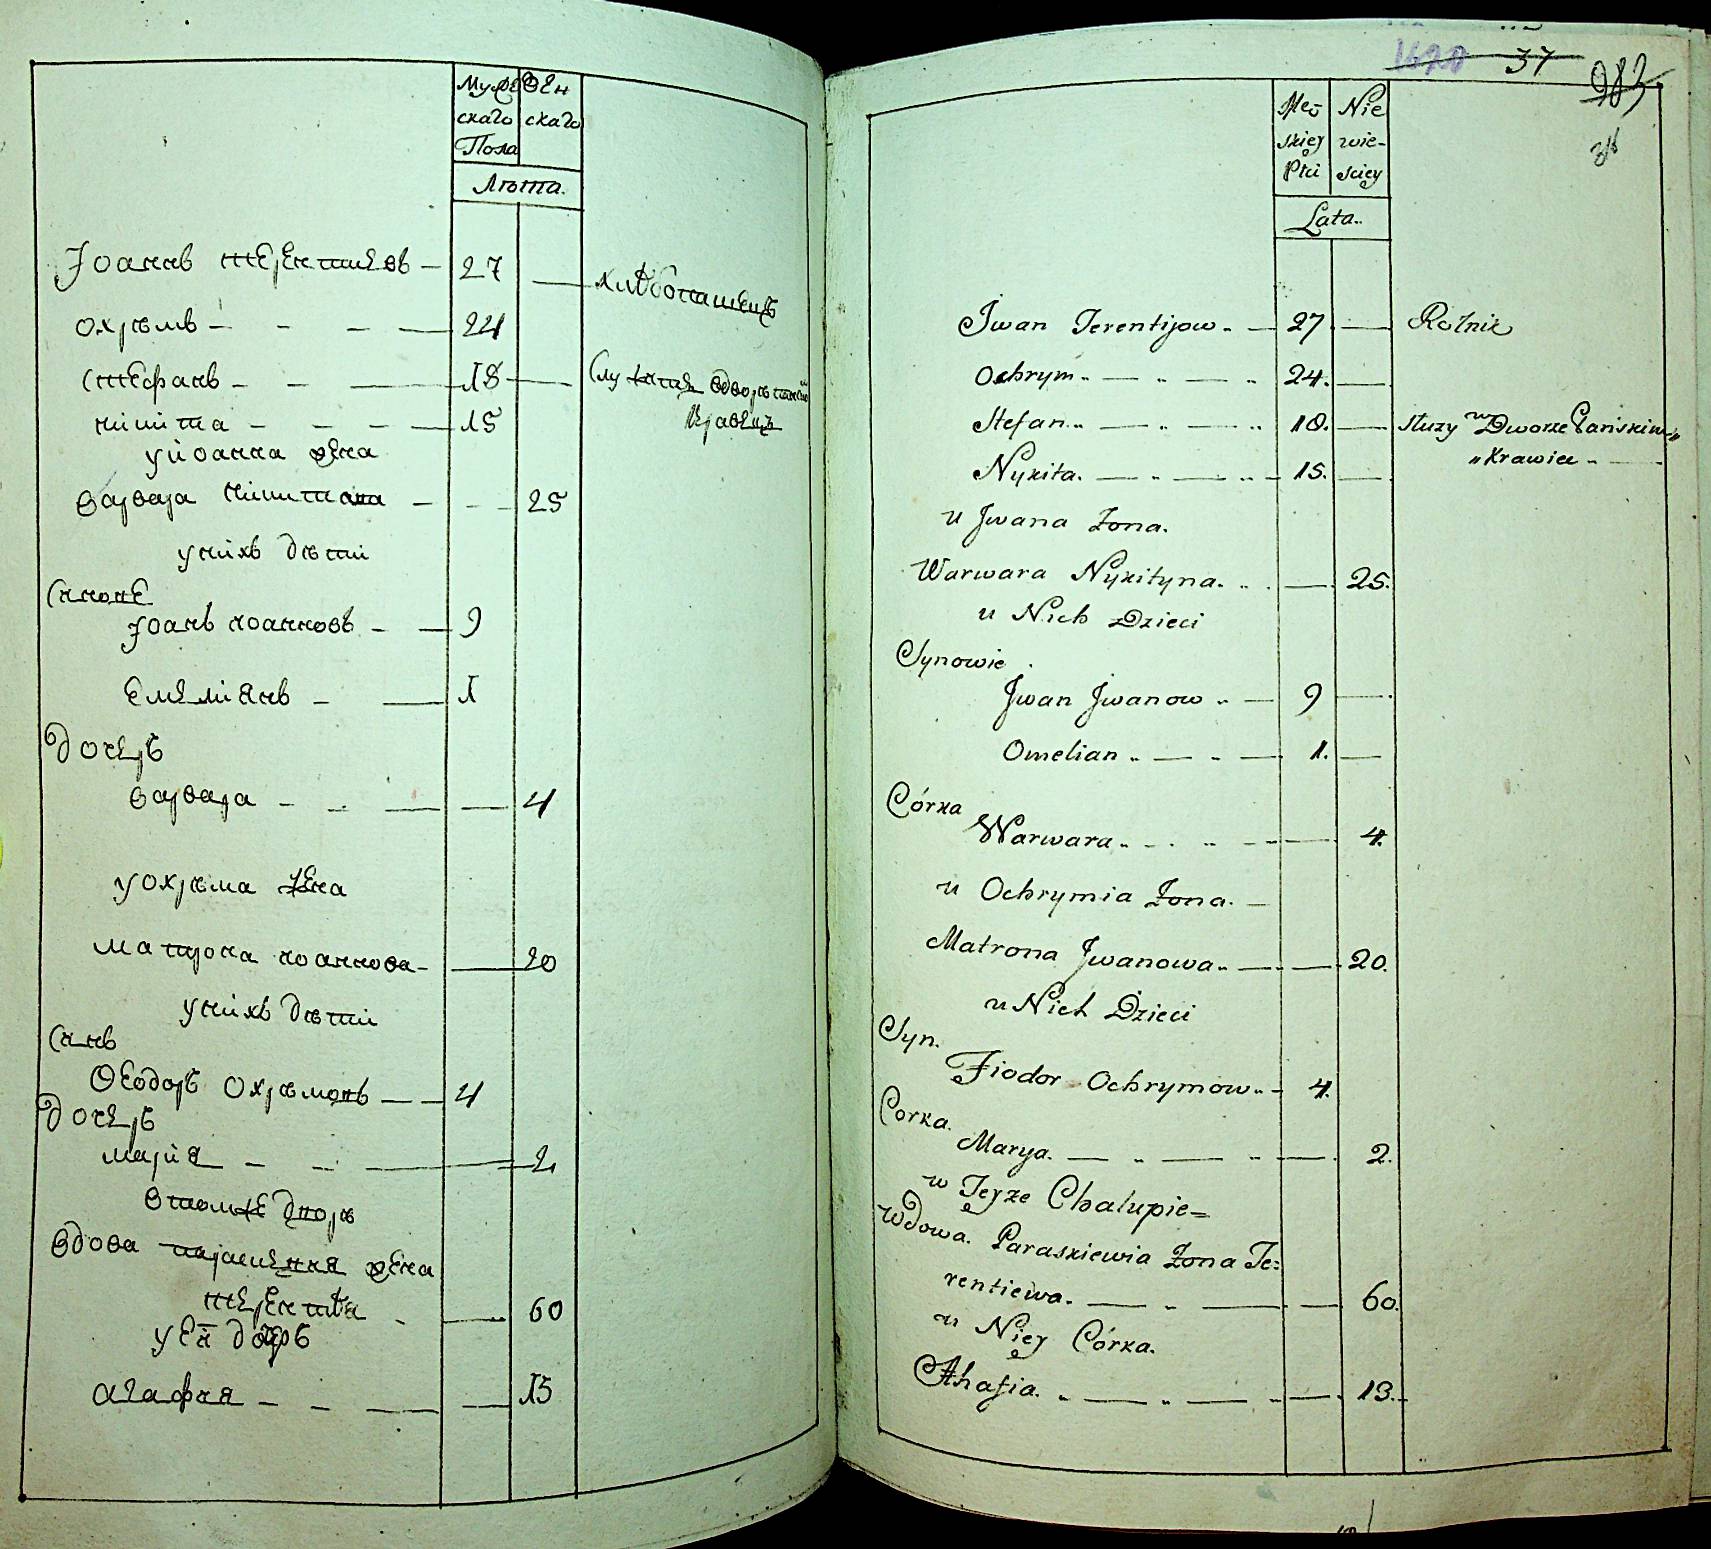 Мужескаго Пола
Женскаго
Лѣта.
Іоаннъ терентиевъ — 27 — хлѣбопашецъ
охрѣмъ — 24
Стефанъ — 18 — Служитъ вдворѣ панскомъ
никита — 15 Кравецъ
уиоанна жена
варвара никитина — 25
унихъ дѣти
Сыновѣ
Іоанъ иоанновъ — 9
емелиянъ — 1
дочерь
варвара — 4
уохрѣма жена
матрона иоаннова — 20
унихъ дѣти
Сынъ
Ѳеодоръ охрѣмовъ — 4
дочерь
мария — 2
втомже дворѣ
вдова параскевия жена
терентѣя — 60
уея дочерь
агафия — 15
1620 37 983
Męskiey Płci
Niewieściey
Lata..
Jwan Terentijow .. — 27 — Rolnik
Ochrym .. — 24. —
Stefan .. — 18. — służy w Dworze Pańskim
Nykita. — 15. — Krawiec
u Jwana Żona.
Warwara Nykityna. — 25.
u Nich Dzieci
Synowie
Jwan Jwanow .. — 9 —
Omelian .. — 1. —
Córka
Warwara .. — 4.
u Ochrymia Żona. —
Matrona Jwanowa .. — 20.
u Nich Dzieci
Syn.
Fiodor Ochrymow .. — 4.
Corka.
Marya. — 2.
w Teyże Chalupie=
Wdowa. Paraskiewia Żona Te=
rentiewa. — 60.
u Niey Córka.
Ahafia. — 13.